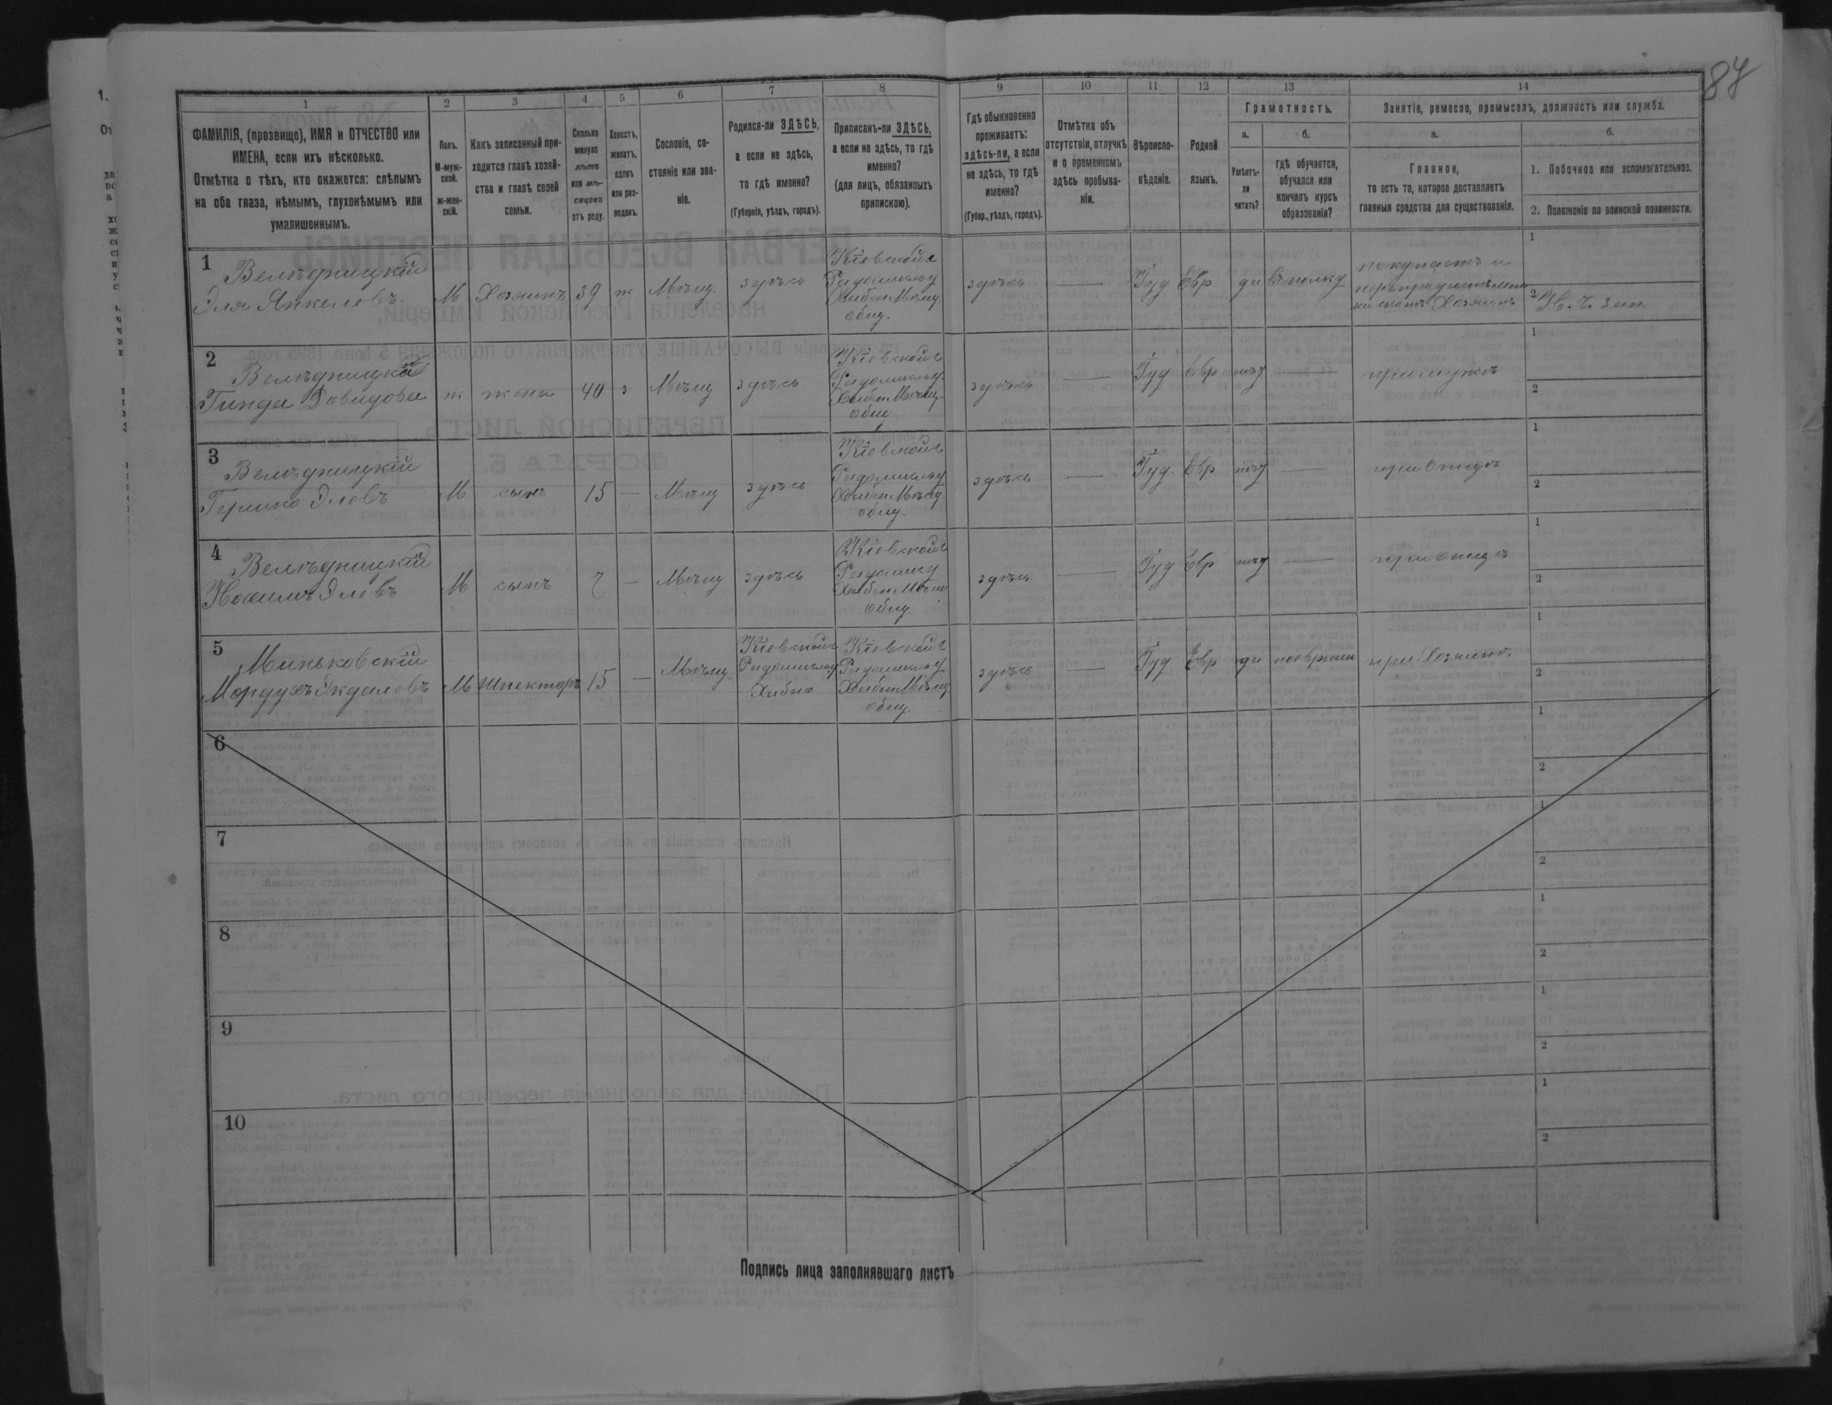 84
1
2
3
4
5
6
7
8
9
10
11
12
13
14
ФАМИЛІЯ, (прозвище), ИМЯ и ОТЧЕСТВО или
ИМЕНА, если ихъ нѣсколько.
Отмѣтка о тѣхъ, кто окажется: слѣпымъ
на оба глаза, нѣмымъ, глухонѣмымъ или
умалишеннымъ.
Полъ.
М-муж-
ской.
ж-жен-
скій.
Какъ записанный при-
ходится главѣ хозяй-
ства и главѣ своей
семьи.
Сколько
минуло
лѣтъ
или мѣ-
сяцевъ
отъ роду.
Холостъ,
женатъ,
вдовъ
или раз-
веденъ.
Сословіе, со-
стояніе или зва-
ніе.
Родился-ли ЗДѢСЬ,
а если не здѣсь,
то гдѣ именно?
(Губернія, уѣздъ, городъ).
Приписанъ-ли ЗДѢСЬ,
а если не здѣсь, то гдѣ
именно?
(для лицъ, обязанныхъ
припискою).
Гдѣ обыкновенно
проживаетъ:
здѣсь-ли, а если
не здѣсь, то гдѣ
именно?
(Губер., уѣздъ, городъ).
Отмѣтка объ
отсутствіи, отлучкѣ
и о временномъ
здѣсь пребыва-
ніи.
Вѣроиспо-
вѣданіе.
Родной
языкъ.
Грамотность.
а.
Умѣетъ-
ли
читать?
б.
гдѣ обучается,
обучался или
кончилъ курсъ
образованія?
Занятіе, ремесло, промыселъ, должность или служба.
а.
Главное,
то есть то, которое доставляетъ
главныя средства для существованія.
б.
1. Побочное или вспомогательное.
2. Положеніе по воинской повинности.
1
Вельдницкій
Эля Янкелевъ
М
Хозяинъ
39
ж
Мѣщ.
здѣсь
Кіевской г.
Радомысльу
Хабно Мѣщ.
общ.
здѣсь
—
Іуд
Евр
да
1
2
2
Вельдницкая
Гинда Давидова
ж
жена
40
з
Мѣщ
здѣсь
Кіевской г
Радомысльу
Хабно Мѣщ.
общ
здѣсь
—
Іуд
Евр
нѣт
—
при мужѣ
1
2
3
Вельдницкій
Гершко Элевъ
М
сынъ
15
—
Мѣщ
здѣсь
Кіевской г
Радомысльу
Хабно Мѣщ
общ.
здѣсь
—
Іуд.
Евр
нѣт
—
при отцѣ
1
2
4
Вельдницкій
Нохимъ Элевъ
М
сынъ
7
—
Мѣщ
здѣсь
Кіевской г
Радомысу
Хабно Мѣщ
общ.
здѣсь
—
Іуд
Евр
нѣт
—
при отцѣ
1
2
5
Миньковскій
Мордухъ
М
15
—
Мѣщ.
Кіевской г
Радомысльу
Хабно
Кіевской г
Радомысльу
Хабно Мѣщ
общ.
здѣсь
—
Іуд
Евр
да
при Хозяинѣ
1
2
6
1
2
7
1
2
8
1
2
9
1
2
10
1
2
Подпись лица заполнявшаго листъ